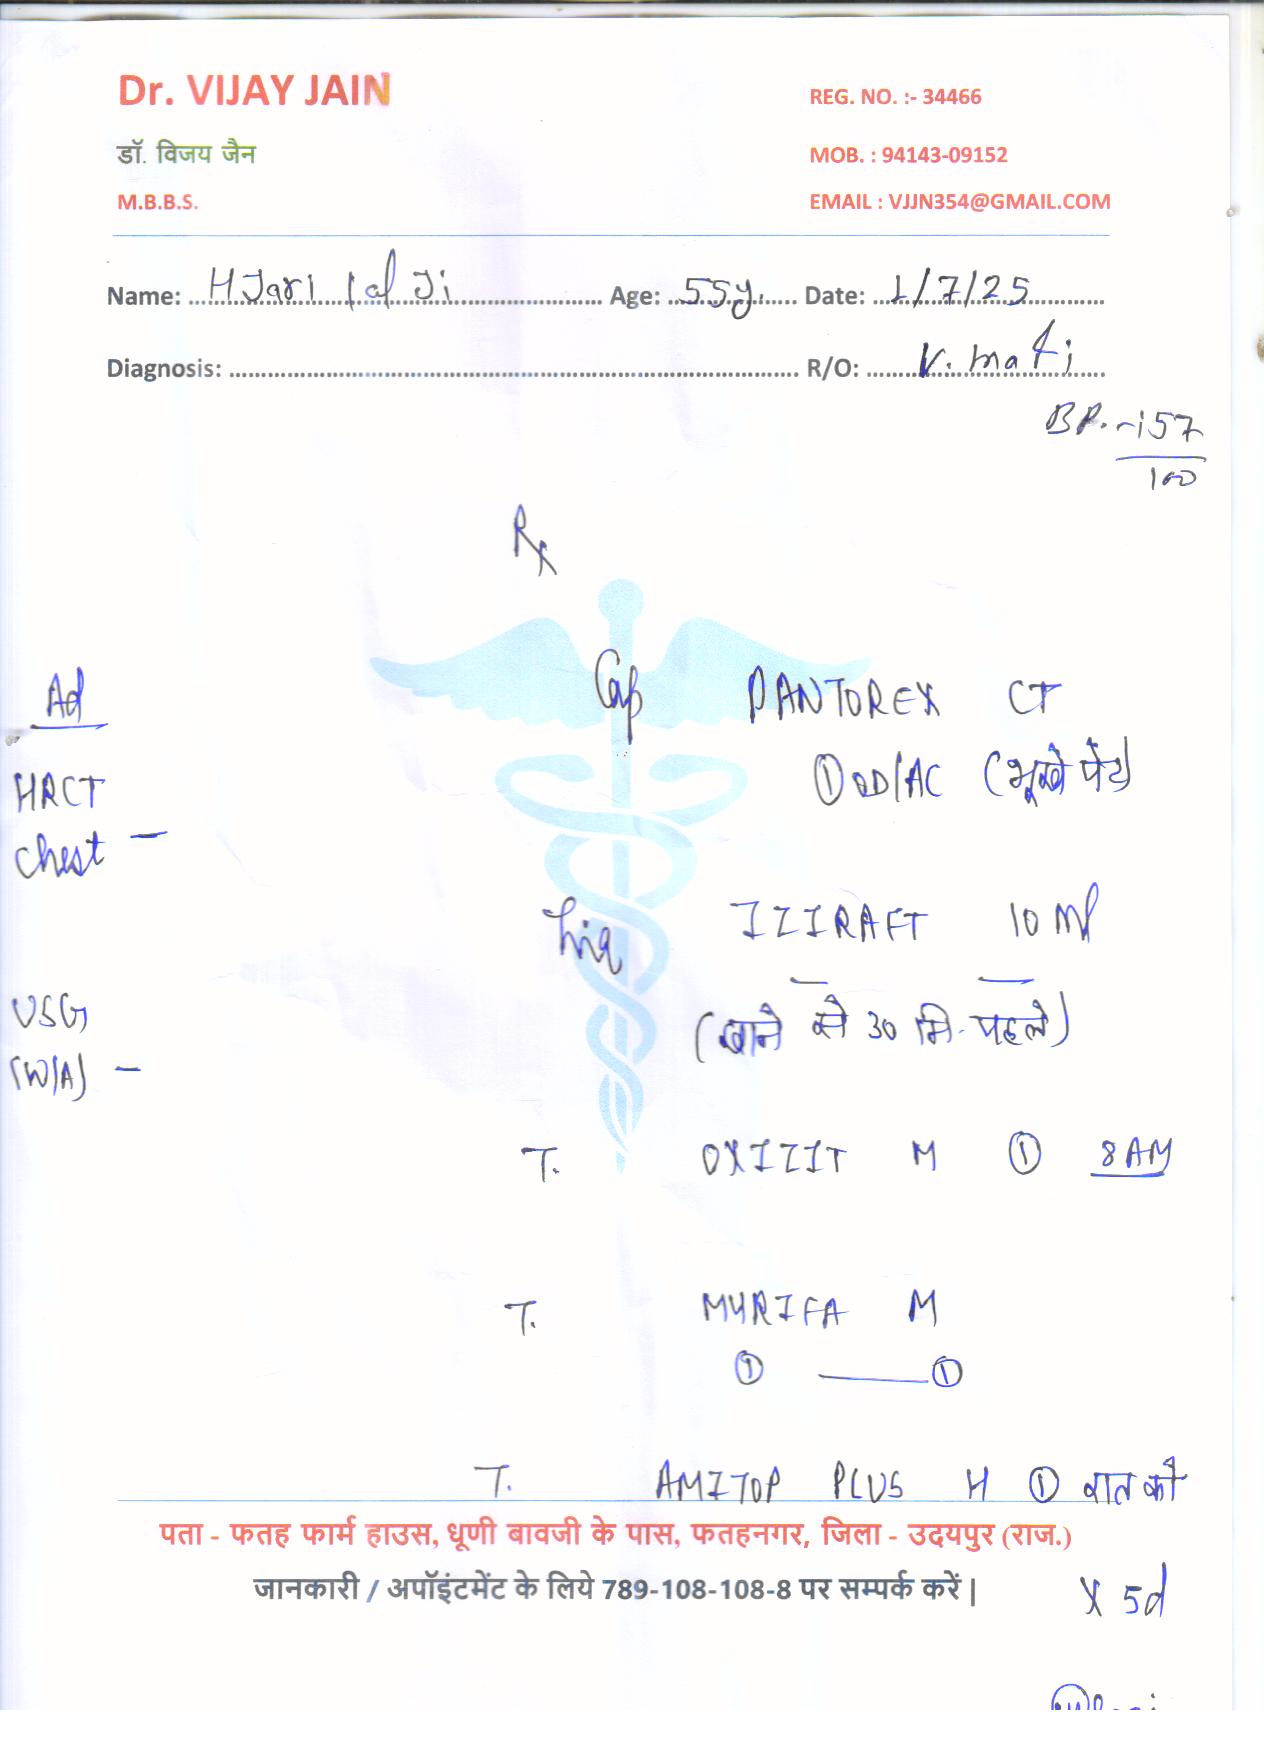 Dr. VIJAY JAIN
REG. NO. :- 34466
डॉ. विजय जैन
MOB. : 94143-09152
M.B.B.S.
EMAIL : VJJN354@GMAIL.COM
Name: HJari lal Ji Age: 55y. Date: 1/7/25
Diagnosis: R/O: V. mati
BP. - 157
100
Rx
Ad
HRCT
Chest -
USG
(W/A) -
Cap PANTOREX CT
① OD/AC (भूखे पेट)
Liq IZIRAFT 10 ml
(खाने से 30 मि. पहले)
T. OXIZIT M ① 8AM
T. MYRIFA M
① — ①
T. AMITOP PLUS H ① रात को
पता - फतह फार्म हाउस, धूणी बावजी के पास, फतहनगर, जिला - उदयपुर (राज.)
जानकारी / अपॉइंटमेंट के लिये 789-108-108-8 पर सम्पर्क करें |
X 5d